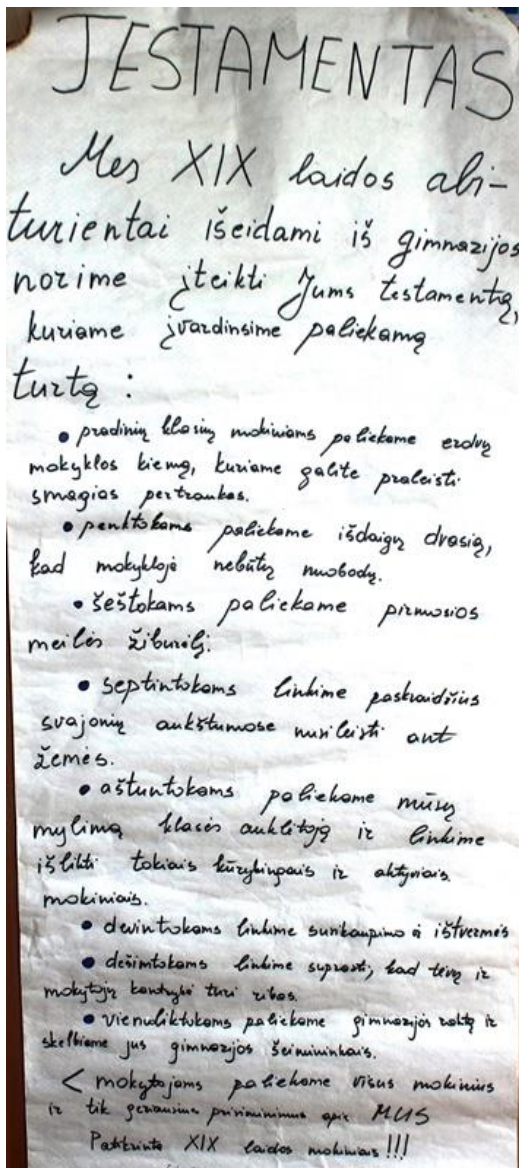 TESTAMENTAS
Mes XIX laidos abi-
turientai išeidami iš gimnazijos
norime įteikti Jums testamentą,
kuriame įvardinsime paliekamą
turtą :
• pradinių klasių mokiniams paliekame erdvų
mokyklos kiemą, kuriame galite praleisti
smagias pertraukas.
• penktokams paliekame išdaigų dvasią,
kad mokykloje nebūtų nuobodų.
• šeštokams paliekame pirmosios
meilės žiburėlį.
• septintokams linkime paskraidžius
svajonių aukštumose nusileisti ant
žemės.
• aštuntokams paliekame mūsų
mylimą klasės auklėtoją ir linkime
išlikti tokiais kūrybingais ir aktyviais
mokiniais.
• devintokams linkime susikaupimo ir ištvermės
• dešimtokams linkime suprasti, kad tėvų ir
mokytojų kantrybė turi ribas.
• vienuoliktokams paliekame gimnazijos raktą ir
skelbiame jus gimnazijos šeimininkais.
< mokytojams paliekame visus mokinius
ir tik geriausius prisiminimus apie MUS
XIX laidos mokiniais !!!